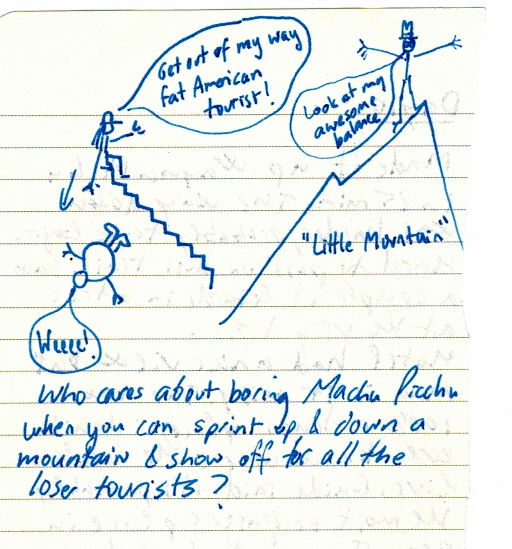 Get out of my way
fat American
tourist!
Look at my
awesome
balance
"Little Mountain"
Weeee!
Who cares about boring Machu Picchu
when you can sprint up & down a
mountain & show off for all the
loser tourists?